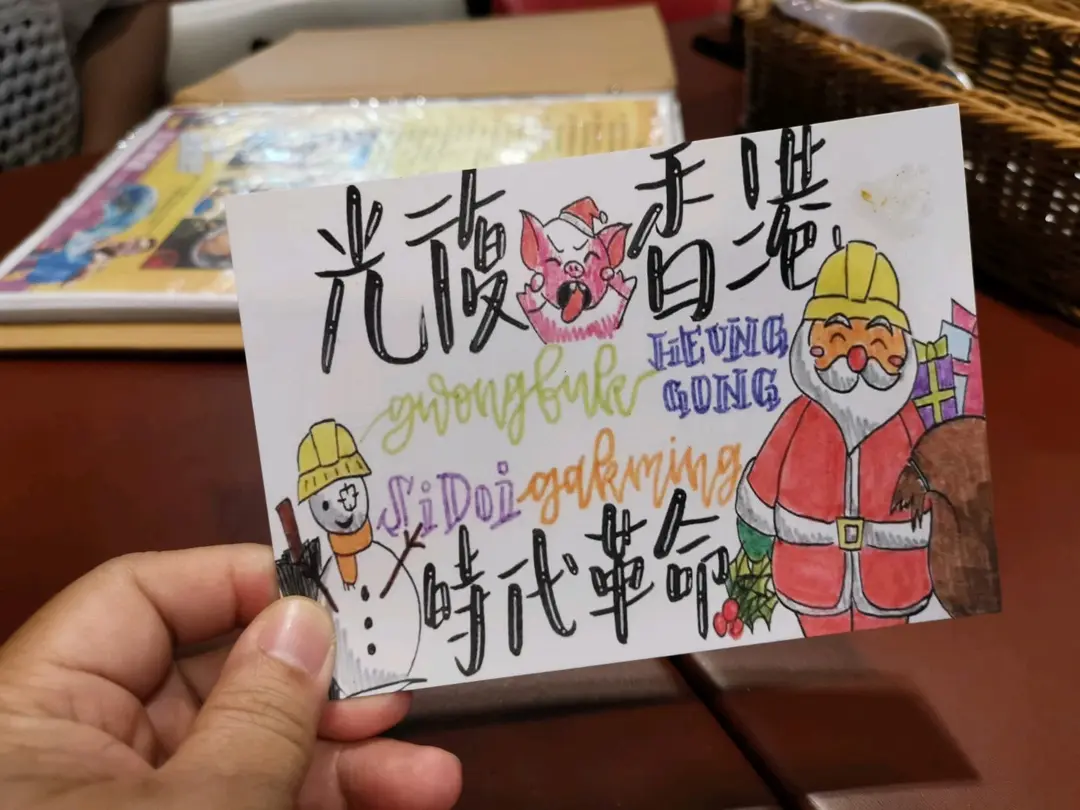 光復香港
gwongfuk
HEUNG
GONG
SiDoi gakming
時代革命